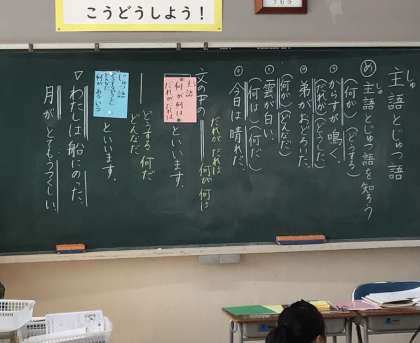 こうどうしよう！
主語とじゅつ語
め 主語とじゅつ語を知ろう
(何が)(どうする)
からすが鳴く。
(だれが)(どうした)
弟がおどろいた。
(何が)(どんなだ)
雲が白い。
(何は)(何だ)
今日は晴れだ。
だれが だれは
何が 何は
文の中の
主語
何が 何は
だれが だれは
といいます。
どうする 何だ
どんなだ
じゅつ語
といいます。
▽わたしは船にのった。
月がとてもうつくしい。